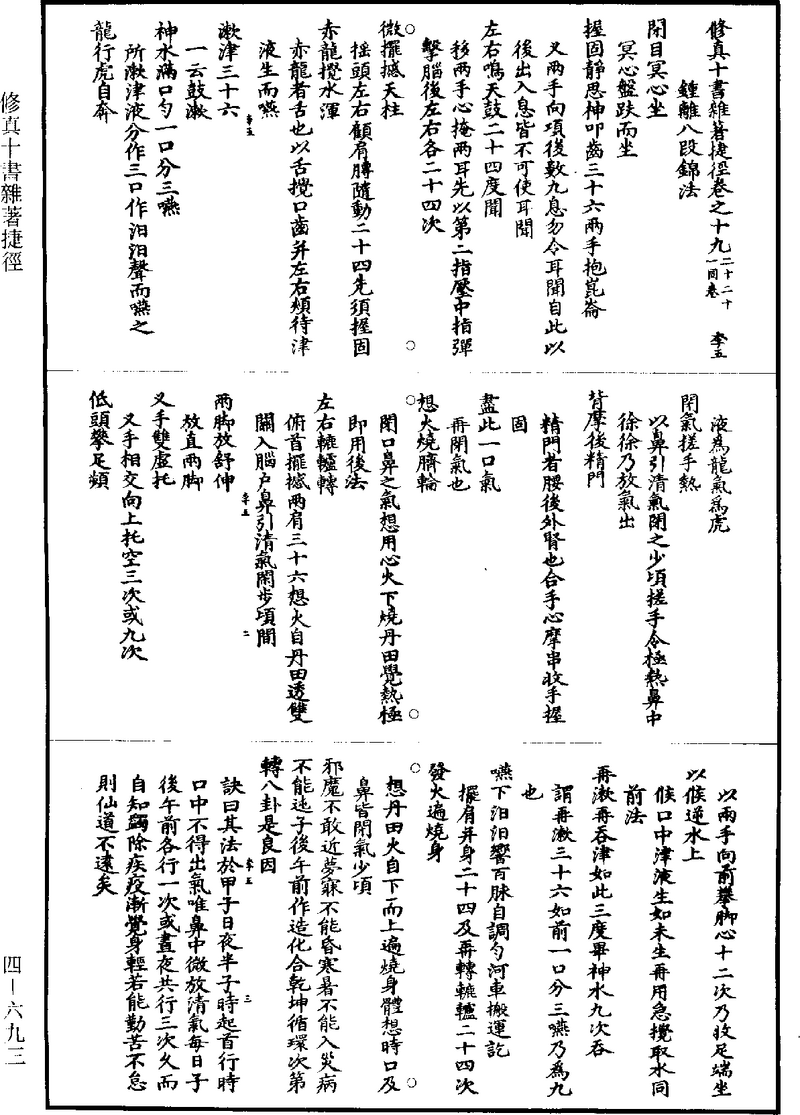 修真十書雜著捷徑卷之十九 二十二十一同卷 李五
鍾離八段錦法
閉目冥心坐
冥心盤趺而坐
握固靜思神叩齒三十六兩手抱崑崙
叉兩手向項後數九息勿令耳聞自此以
後出入息皆不可使耳聞
左右鳴天鼓二十四度聞
移兩手心掩兩耳先以第二指壓中指彈
擊腦後左右各二十四次
微擺撼天柱
搖頭左右顧肩膊隨動二十四先須握固
赤龍攪水渾
赤龍者舌也以舌攪口齒并左右頰待津
液生而嚥
漱津三十六
一云鼓漱
神水滿口勻一口分三嚥
所漱津液分作三口作汨汨聲而嚥之
龍行虎自奔
液為龍氣為虎
閉氣搓手熱
以鼻引清氣閉之少頃搓手令極熱鼻中
徐徐乃放氣出
背摩後精門
精門者腰後外腎也合手心摩畢收手握
固
盡此一口氣
再閉氣也
想火燒臍輪
閉口鼻之氣想用心火下燒丹田覺熱極
即用後法
左右轆轤轉
俯首擺撼兩肩三十六想火自丹田透雙
關入腦戶鼻引清氣閉少頃間
兩脚放舒伸
放直兩脚
叉手雙虛托
叉手相交向上托空三次或九次
低頭攀足頻
以兩手向前攀脚心十二次乃收足端坐
以候逆水上
候口中津液生如未生再用急攪取水同
前法
再漱再吞津如此三度畢神水九次吞
謂再漱三十六如前一口分三嚥乃為九
也
嚥下汨汨響百脉自調勻河車搬運訖
擺肩并身二十四及再轉轆轤二十四次
發火遍燒身
想丹田火自下而上遍燒身體想時口及
鼻皆閉氣少頃
邪魔不敢近夢寐不能昏寒暑不能入災病
不能迍子後午前作造化合乾坤循環次第
轉八卦是良因
訣曰其法於甲子日夜半子時起首行時
口中不得出氣唯鼻中微放清氣每日子
後午前各行一次或晝夜共行三次久而
自知蠲除疾疫漸覺身輕若能勤苦不怠
則仙道不遠矣
修真十書雜著捷徑
四-六九三